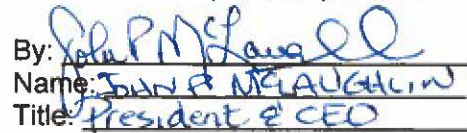 By: John P McLaughlin
Name: JOHN P MCLAUGHLIN
Title: President & CEO